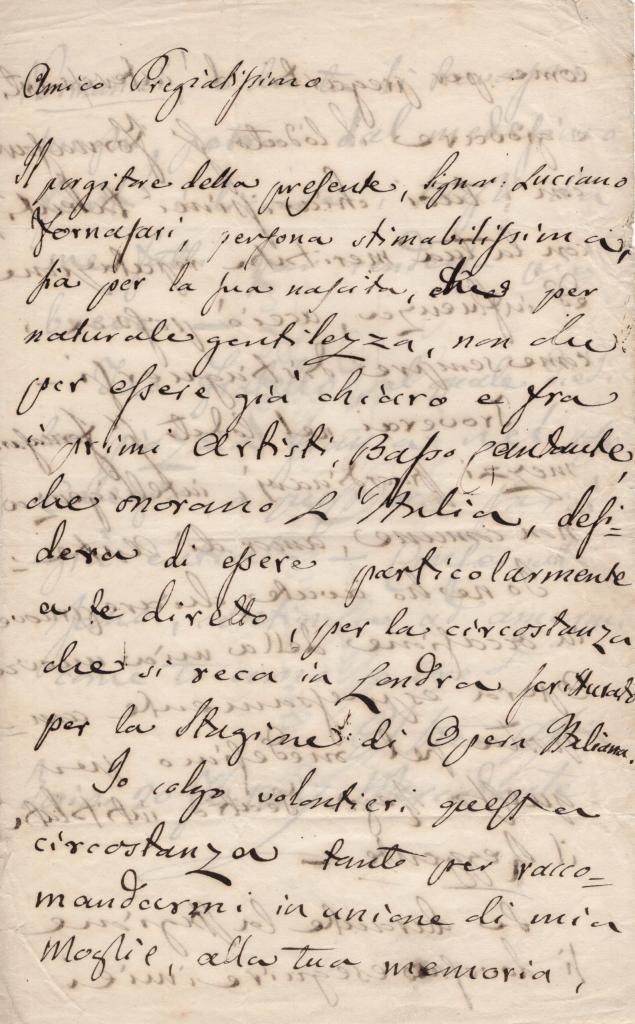 Amico Pregiatissimo
Il porgitore della presente, Signor: Luciano
Fornasari, persona stimabilissima,
sia per la sua nascita, che per
naturale gentilezza, non che
per essere già chiaro e fra
i primi Artisti, Basso Cantante,
che onorano L'Italia, desi=
dera di essere particolarmente
a te diretto, per la circostanza
che si reca in Londra scritturato
per la Stagione di Opera Italiana.
Io colgo volontieri questa
circostanza tanto per racco=
mandarmi in unione di mia
Moglie, alla tua memoria,